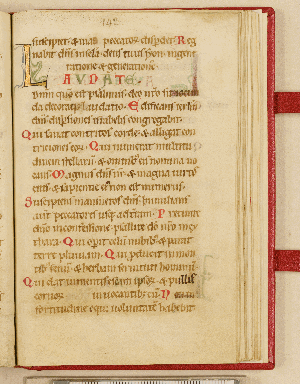 142
suscipiet & uias peccator disperdet Reg
nabit dns in scla. deus tuus syon. in gene
ratione & generatione.
LAUDATE.
dnm qm bonus est psalmus. deo nro sit iocun
da decoraq; laudatio. Edificans ierlm
dns dispsiones israhelis congregabit.
Qui sanat contritos corde. & alligat con
tritiones eor. Qui numerat multitu
dinem stellarū. & omnibȝ eis nomina uo
cans. Magnus dns nr & magna uirtus
eius. & sapientie ei non est numerus.
Suscipiens mansuetos dns. humilians
aut peccatores usq; ad terram. Precinite
dno in confessione. psallite deo nro in cy
thara. Qui operit celū nubibȝ. & parat
terre pluuiam. Qui producit in mon
tibȝ fenū. & herbam seruituti hominū.
Qui dat iumentis escam ipsoȝ. & pullis
coruor inuocantibȝ eū. N
fortitudine equi uoluntatē habebit